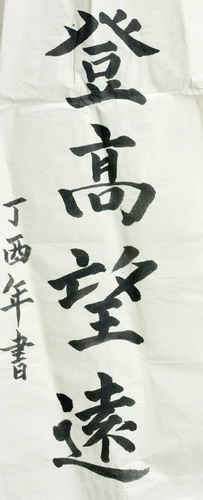 登高望遠
丁酉年書